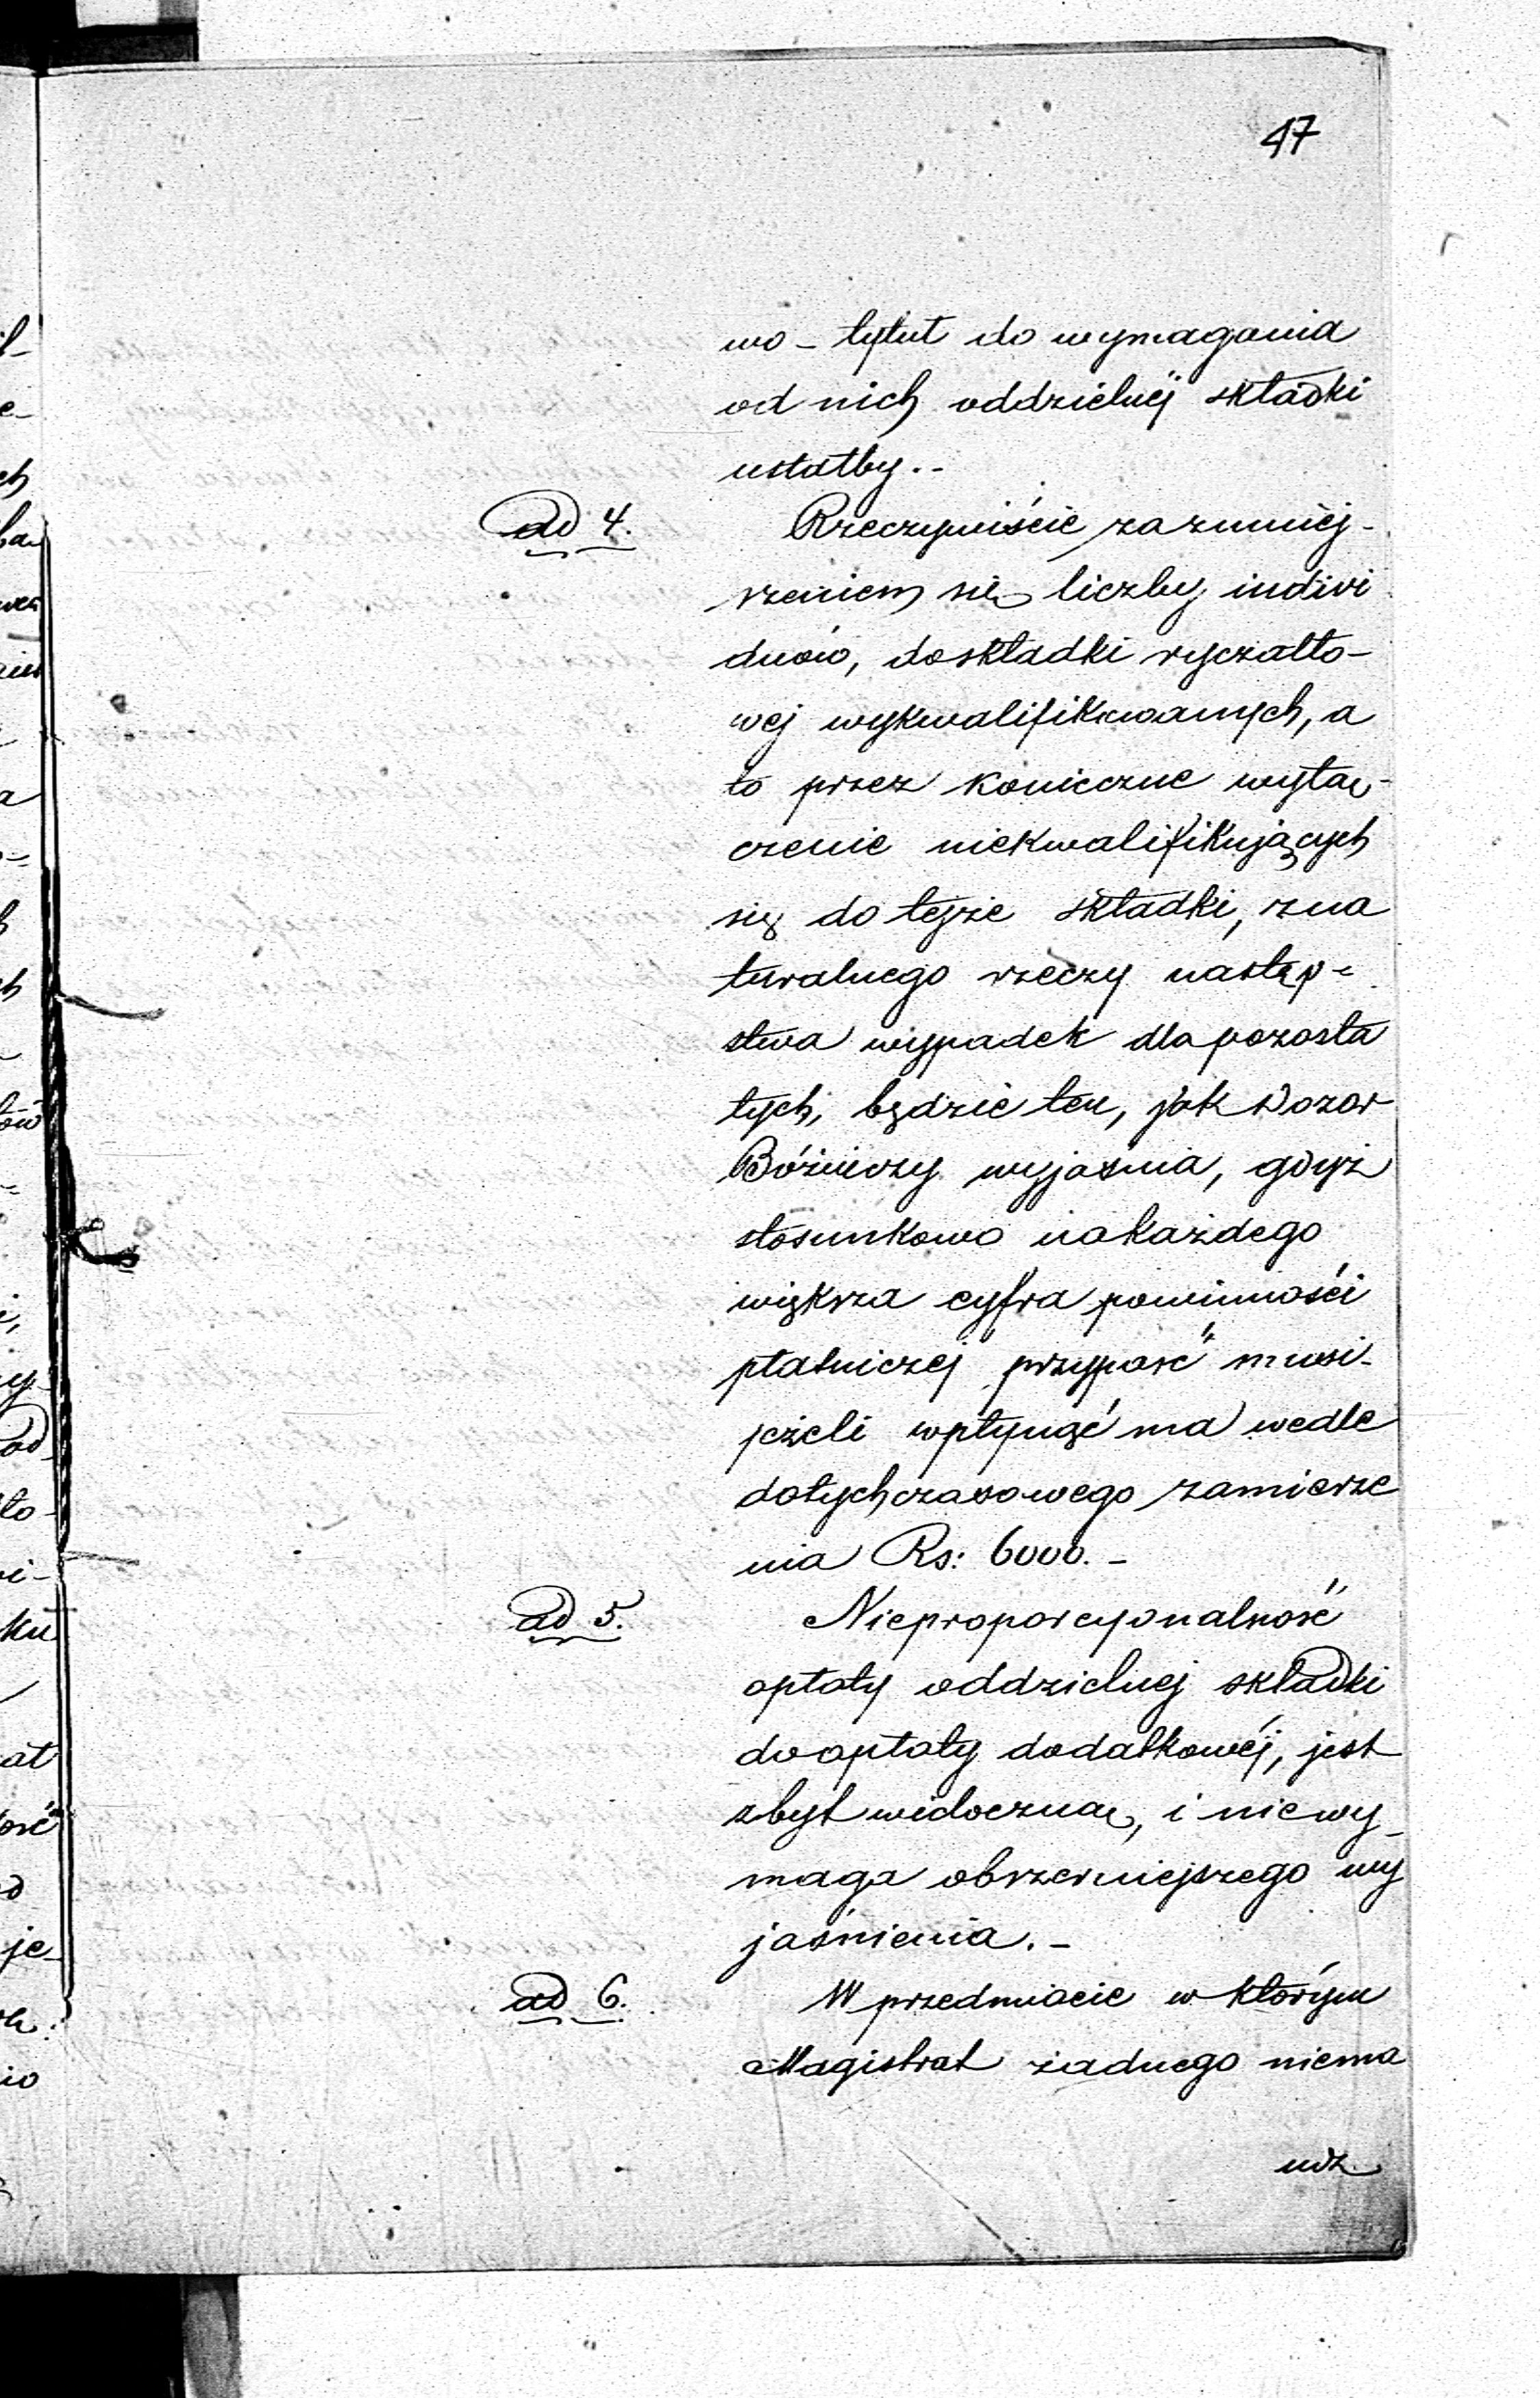 47
wo – tytuł do wymagania
od nich oddzielnéj składki
ustałby. –
ad 4. Rzeczywiście za zmniéj-
szeniem się liczby indivi
duów, do składki ryczałto-
wej wykwalifikowanych, a
to przez konieczne wyłą-
czenie niekwalifikujących
się do tejże składki, z na
turalnego rzeczy następ-
stwa wypadek dla pozosta
łych, będzie ten, jak Dozor
Bóżniczy wyjaśnia, gdyż
stosunkowo na każdego
większa cyfra powinności
płatniczej przypaść musi-
jeżeli wpłynąć ma wedle
dotychczasowego zamierze
nia Rs: 6000. –
ad 5. Nieproporcyonalność
opłaty oddzielnej składki
do opłaty dodatkowéj, jest
zbyt widoczną, i nie wy-
maga obszerniejszego wy
jaśnienia. –
ad 6. W przedmiocie w którym
Magistrat żadnego niema
udz